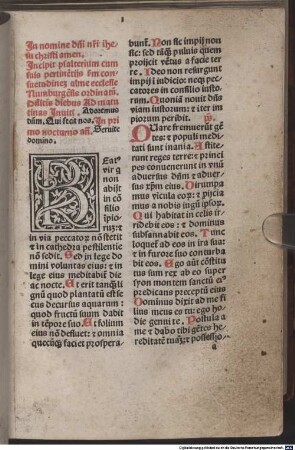 In nomine dñi nr̃i ihe
su christi amen.
Incipit psalterium cum
suis pertinẽtijs ẜm con
suetudinẽ alme ecclesie
Numburgẽsis ordinatũ.
Dñicis diebus Ad ma
tinas Inuit. Adoremus
dñm. Qui fecit nos. In pri
mo nocturno añ. Seruite
domino.
BEat
vir q
non
abijt
in cõ
silio
ipio
ruz: et
in via peccatoꝝ nõ stetit
et in cathedra pestilencie
nõ sedit. Sed in lege do
mini voluntas eius: et in
lege eius meditabit̃ die
ac nocte. Et erit tanq̃ li
gnũ quod plantatũ est se
cus decursus aquarum:
quod fructũ suum dabit
in tẽpore suo. Et folium
eius nõ defluet: et omnia
quecũq̃ faciet prospera
bunt̃. Non sic impij non
sic: sed tãq̃ puluis quem
proijcit vẽtus a facie ter
re. Ideo non resurgunt
impij ĩ indicio: neq̃ pec
catores in consilio iusto
rum. Quoniã nouit dñs
viam iustorum: et iter im
piorum peribit.
QUare fremuerũt gẽ
tes: et populi medi
tati sunt inania. Astite
runt reges terre: et prin
cipes conuenerunt in vnũ
aduersus dñm et aduer
sus xp̃m eius. Dirumpa
mus vicula eoꝝ: et pijcia
mus a nobis iugũ ipsoꝝ.
Qui habitat in celis irri
debit eos: et dominus
subsannabit eos. Tunc
loquet̃ ad eos in ira sua:
et in furore suo conturba
bit eos. Ego aũt cõstitu
tus sum rex ab eo super
syon montem sanctũ ei⁹
p̃dicans preceptũ eius
Dominus dixit ad me fi
lius meus es tu: ego ho
die genui te. Postula a
me et dabo tibi gẽtes he
reditatẽ tuã: et possessio
a